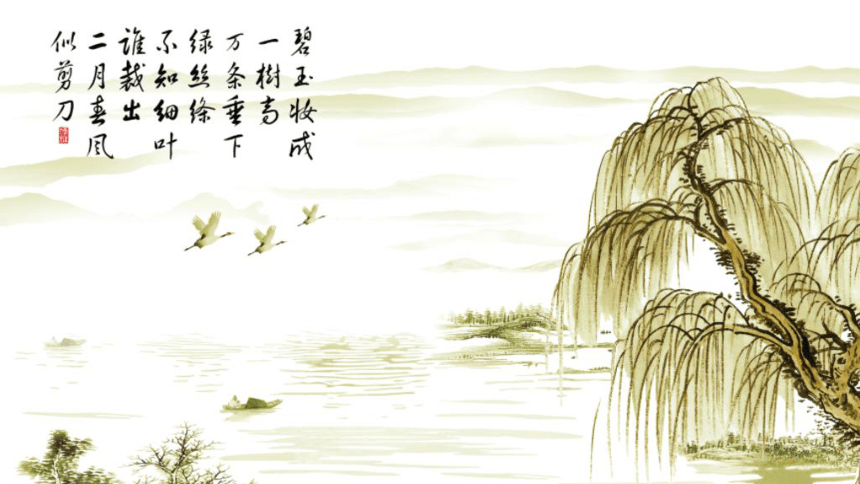 碧玉妆成
一樹高
万条垂下
绿丝绦
不知细叶
谁裁出
二月春风
似剪刀